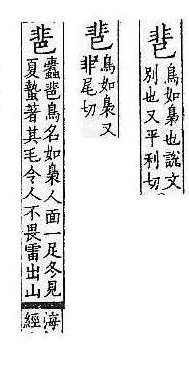 𩇯
鳥如梟也說文
別也又平利切
𩇯
鳥如梟又
非尾切
𩇯
蠹𩇯鳥名如梟人面一足冬見
夏蟄著其毛令人不畏雷出山
海
經